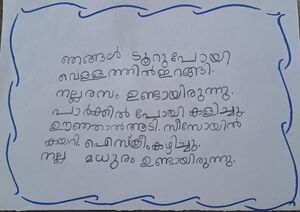 ഞങ്ങൾ ടൂറുപോയി
വെള്ളത്തിൽഇറങ്ങി.
നല്ലരസം ഉണ്ടായിരുന്നു.
പാർക്കിൽ പോയി കളിച്ചു.
ഊഞ്ഞാൽആടി. സീസോയിൽ
കയറി. ഐസ്ക്രീംകഴിച്ചു.
നല്ല മധുരം ഉണ്ടായിരുന്നു.